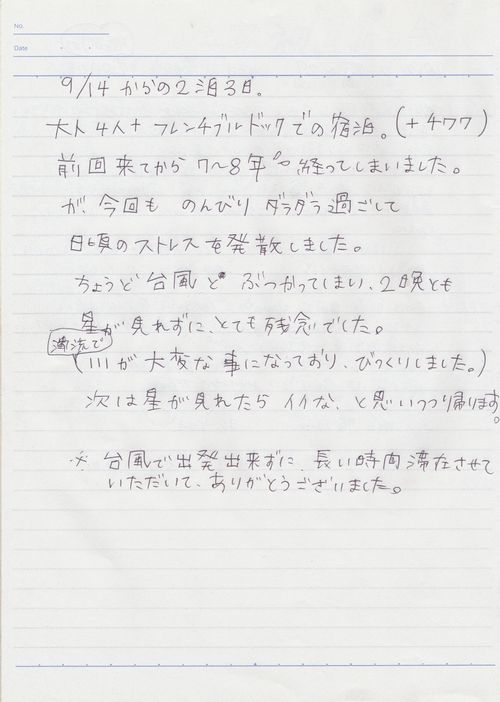 No.
Date
9/14 からの2泊3日。
大人4人+フレンチブルドックでの宿泊。(+477)
前回来てから 7〜8年 経ってしまいました。
が、今回も のんびり ダラダラ過ごして
日頃のストレスを発散しました。
ちょうど台風と ぶつかってしまい、2晩とも
星が見れずに、とても残念でした。
濁流で
(川が大変な事になっており、びっくりしました。)
次は星が見れたらイイな、と思いつつ帰ります。
※ 台風で出発出来ずに、長い時間滞在させて
いただいて、ありがとうございました。